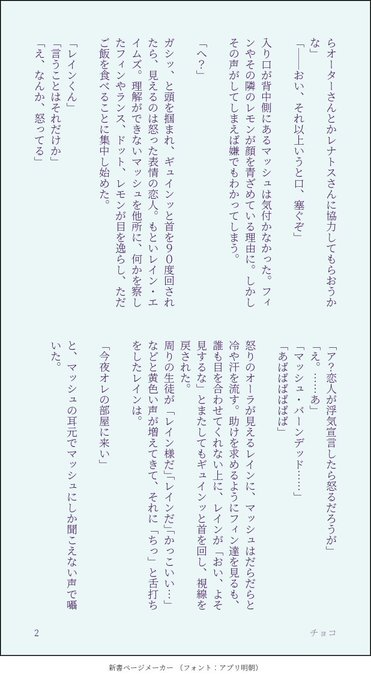 らオーターさんとかレナトスさんに協力してもらおうか
な」
「――おい、それ以上いうと口、塞ぐぞ」
入り口が背中側にあるマッシュは気付かなかった。フィ
ンやその隣のレモンが顔を青ざめている理由に。しかし
その声がしてしまえば嫌でもわかってしまう。
「へ？」
ガシッ、と頭を掴まれ、ギュインッと首を９０度回され
たら、見えるのは怒った表情の恋人。もといレイン・エ
イムズ。理解ができないマッシュを他所に、何かを察し
たフィンやランス、ドット、レモンが目を逸らし、ただ
ご飯を食べることに集中し始めた。
「レインくん」
「言うことはそれだけか」
「え、なんか、怒ってる」
「ア？恋人が浮気宣言したら怒るだろうが」
「え。……あ」
「マッシュ・バーンデッド……」
「あばばばばばばば」
怒りのオーラが見えるレインに、マッシュはだらだらと
冷や汗を流す。助けを求めるようにフィン達を見るも、
誰も目を合わせてくれない上に、レインが「おい、よそ
見するな」とまたしてもギュインッと首を回し、視線を
戻された。
周りの生徒が「レイン様だ」「レインだ」「かっこいい…」
などと黄色い声が増えてきて、それに「ちっ」と舌打ち
をしたレインは。
「今夜オレの部屋に来い」
と、マッシュの耳元でマッシュにしか聞こえない声で囁
いた。
2
チョコ
新書ページメーカー （フォント：アプリ明朝）